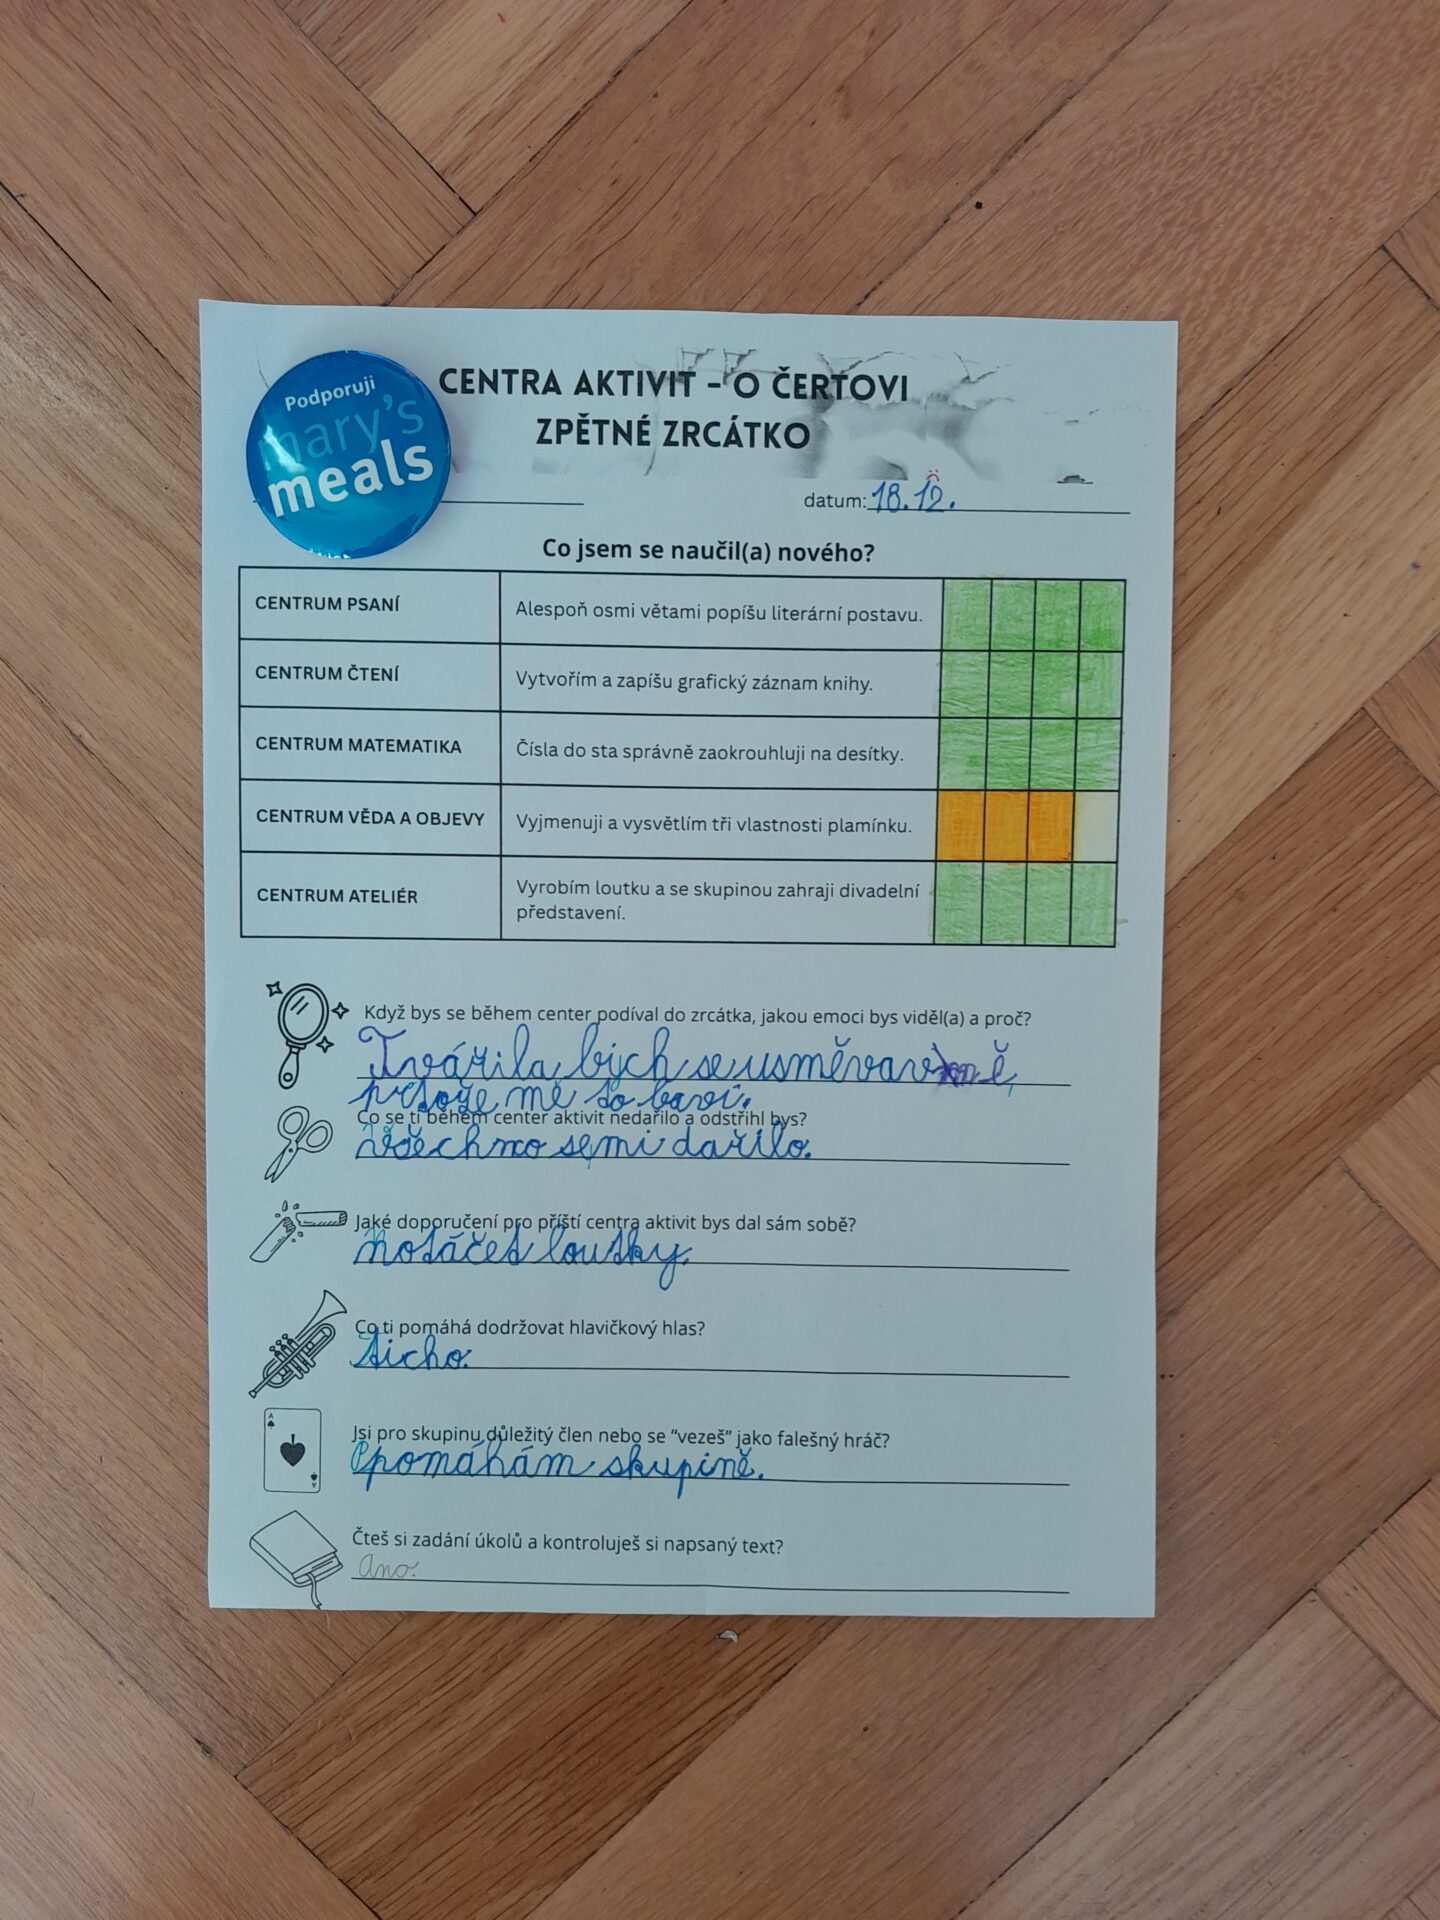 Podporuji
mary's
meals
CENTRA AKTIVIT - O ČERTOVI
ZPĚTNÉ ZRCÁTKO
datum: 18.12.
Co jsem se naučil(a) nového?
CENTRUM PSANÍ Alespoň osmi větami popíšu literární postavu.
CENTRUM ČTENÍ Vytvořím a zapíšu grafický záznam knihy.
CENTRUM MATEMATIKA Čísla do sta správně zaokrouhluji na desítky.
CENTRUM VĚDA A OBJEVY Vyjmenuji a vysvětlím tři vlastnosti plamínku.
CENTRUM ATELIÉR Vyrobím loutku a se skupinou zahraji divadelní
představení.
Když bys se během center podíval do zrcátka, jakou emoci bys viděl(a) a proč?
Tvářila bych se usměvavě,
protože mě to baví.
Co se ti během center aktivit nedařilo a odstřihl bys?
Všechno se mi dařilo.
Jaké doporučení pro příští centra aktivit bys dal sám sobě?
Notáčet loutky.
Co ti pomáhá dodržovat hlavičkový hlas?
ticho.
Jsi pro skupinu důležitý člen nebo se "vezeš" jako falešný hráč?
Ppomáhám skupině.
Čteš si zadání úkolů a kontroluješ si napsaný text?
Ano.
A
A